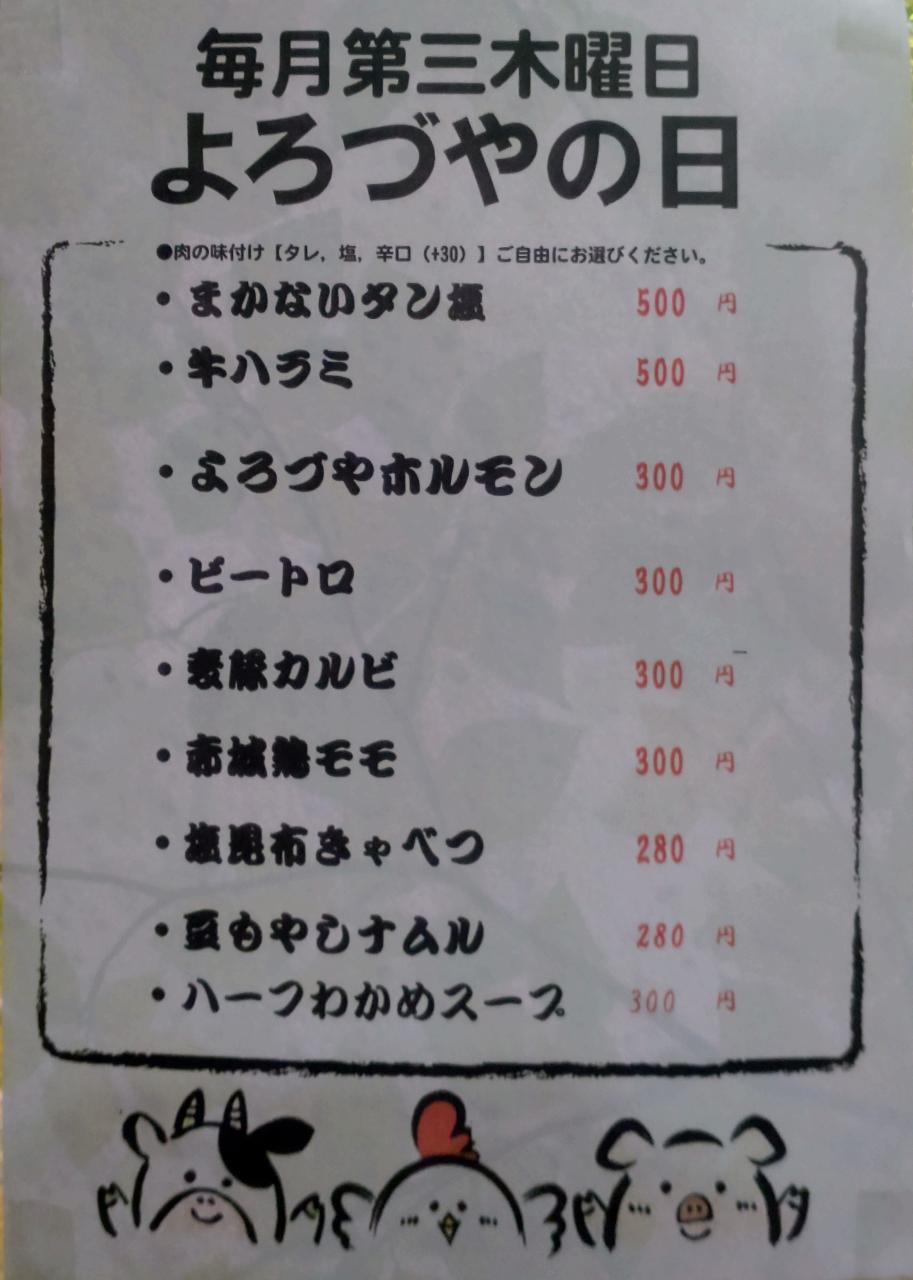 毎月第三木曜日
よろづやの日
●肉の味付け【タレ, 塩, 辛口（+30）】ご自由にお選びください。
・まかないタン塩 500 円
・牛ハラミ 500 円
・よろづやホルモン 300 円
・ピートロ 300 円
・麦豚カルビ 300 円
・赤城鶏モモ 300 円
・塩昆布きゃべつ 280 円
・豆もやしナムル 280 円
・ハーフわかめスープ 300 円